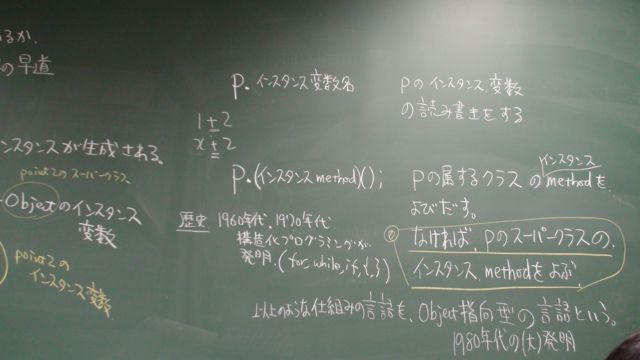 るか.
の早道
p.インスタンス変数名
pのインスタンス変数
の読み書きをする
1+2
x+2
ンスタンスが生成される.
point2のスーパークラス
Objetのインスタンス
変数
point2の
インスタンス変数.
p.(インスタンスmethod)();
pの属するクラスのインスタンスmethodを
よびだす。
なければ, pのスーパークラスの,
インスタンス methodをよぶ
歴史 1960年代, 1970年代
構造化プログラミングが
発明. (for, while, if, { })
以上のような仕組みの言語を, Object指向型の言語という。
1980年代の(大)発明